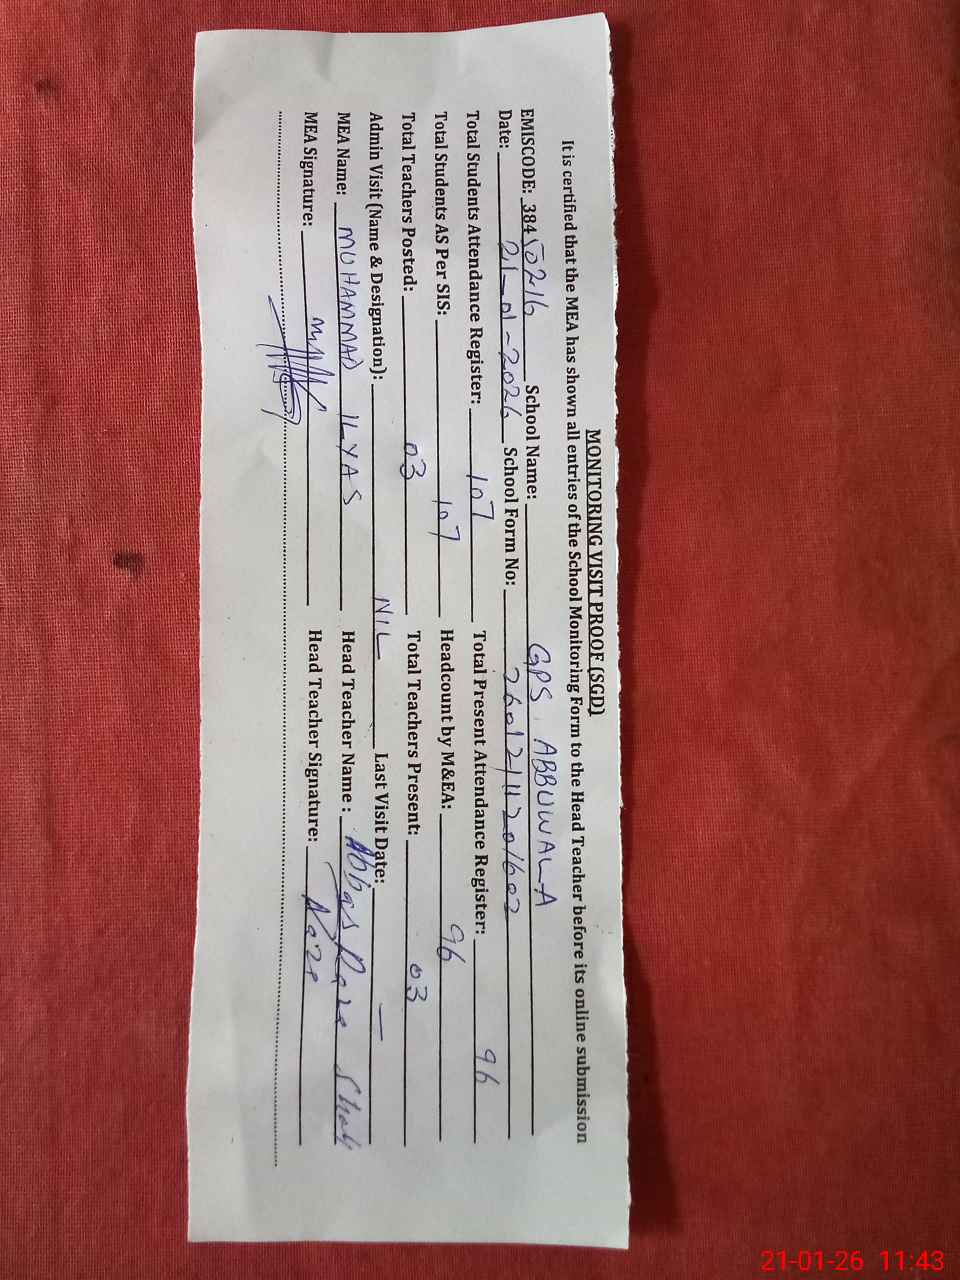 MONITORING VISIT PROOF (SGD)
It is certified that the MEA has shown all entries of the School Monitoring Form to the Head Teacher before its online submission
EMISCODE: 38450216 School Name: GPS ABBUWALA
Date: 21-01-2026 School Form No: 26012111201602
Total Students Attendance Register: 107 Total Present Attendance Register: 96
Total Students AS Per SIS: 107 Headcount by M&EA: 96
Total Teachers Posted: 03 Total Teachers Present: 03
Admin Visit (Name & Designation): NIL Last Visit Date: —
MEA Name: MUHAMMAD ILYAS Head Teacher Name : Abbas Raza Shah
MEA Signature: Head Teacher Signature:
21-01-26 11:43